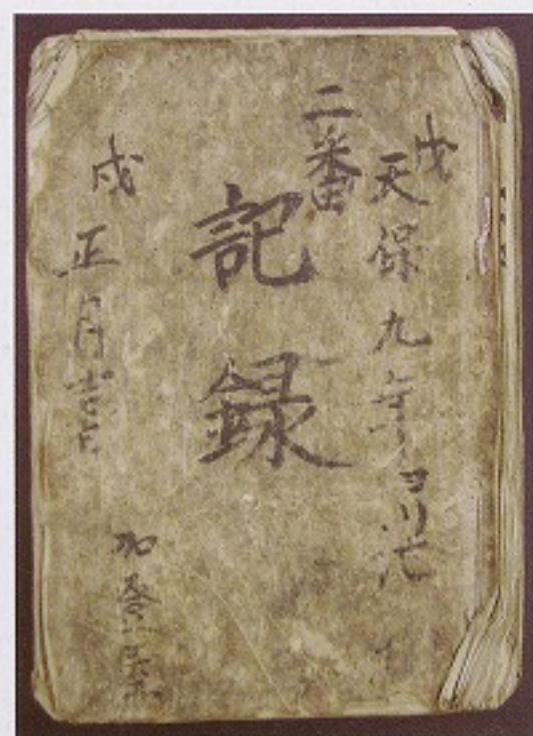 戊
天保九年ヨリ
二番
記録
戌
正月吉日
加登屋